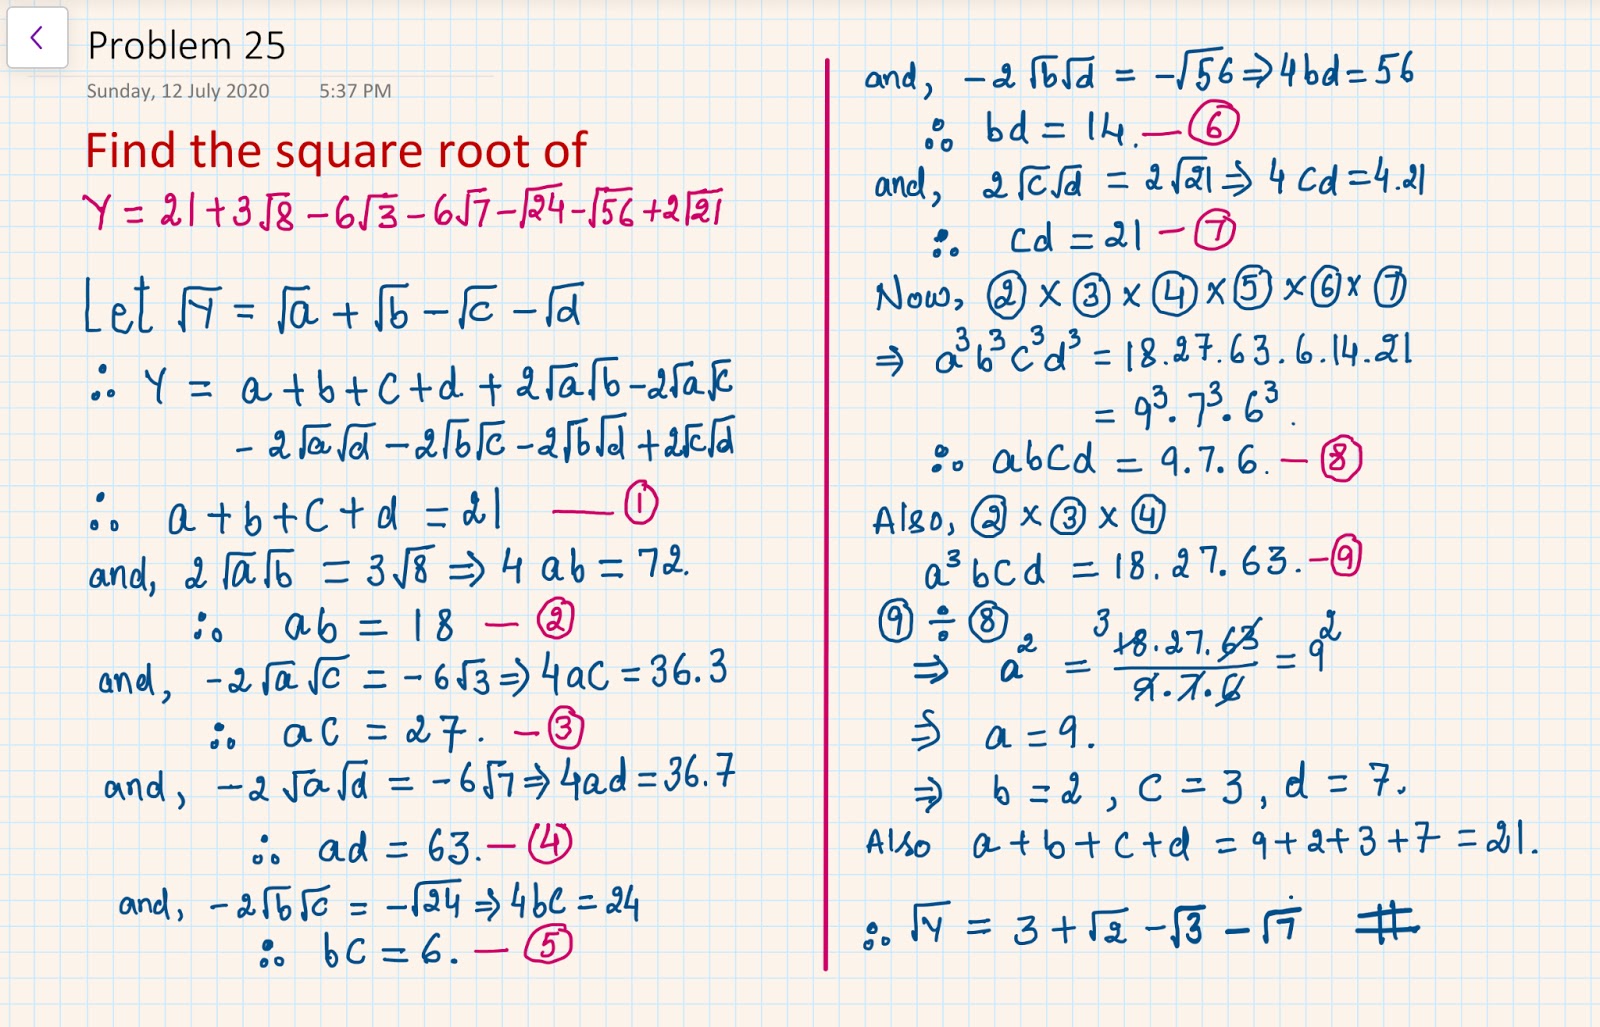 Problem 25
Sunday, 12 July 2020 5:37 PM
Find the square root of
Y = 21 + 3√8 − 6√3 − 6√7 − √24 − √56 + 2√21
Let √Y = √a + √b − √c − √d
∴ Y = a + b + c + d + 2√a√b − 2√a√c
− 2√a√d − 2√b√c − 2√b√d + 2√c√d
∴ a + b + c + d = 21 — ①
and, 2√a√b = 3√8 ⇒ 4ab = 72.
∴ ab = 18 — ②
and, −2√a√c = −6√3 ⇒ 4ac = 36.3
∴ ac = 27. — ③
and, −2√a√d = −6√7 ⇒ 4ad = 36.7
∴ ad = 63. — ④
and, −2√b√c = −√24 ⇒ 4bc = 24
∴ bc = 6. — ⑤
and, −2√b√d = −√56 ⇒ 4bd = 56
∴ bd = 14. — ⑥
and, 2√c√d = 2√21 ⇒ 4cd = 4.21
∴ cd = 21 — ⑦
Now, ② × ③ × ④ × ⑤ × ⑥ × ⑦
⇒ a³b³c³d³ = 18.27.63.6.14.21
= 9³. 7³. 6³.
∴ abcd = 9.7.6. — ⑧
Also, ② × ③ × ④
a³bcd = 18.27.63. — ⑨
⑨ ÷ ⑧
⇒ a² = 3 18.27.63 / 9.7.6 = 9²
⇒ a = 9.
⇒ b = 2, c = 3, d = 7.
Also a + b + c + d = 9 + 2 + 3 + 7 = 21.
∴ √Y = 3 + √2 − √3 − √7 #